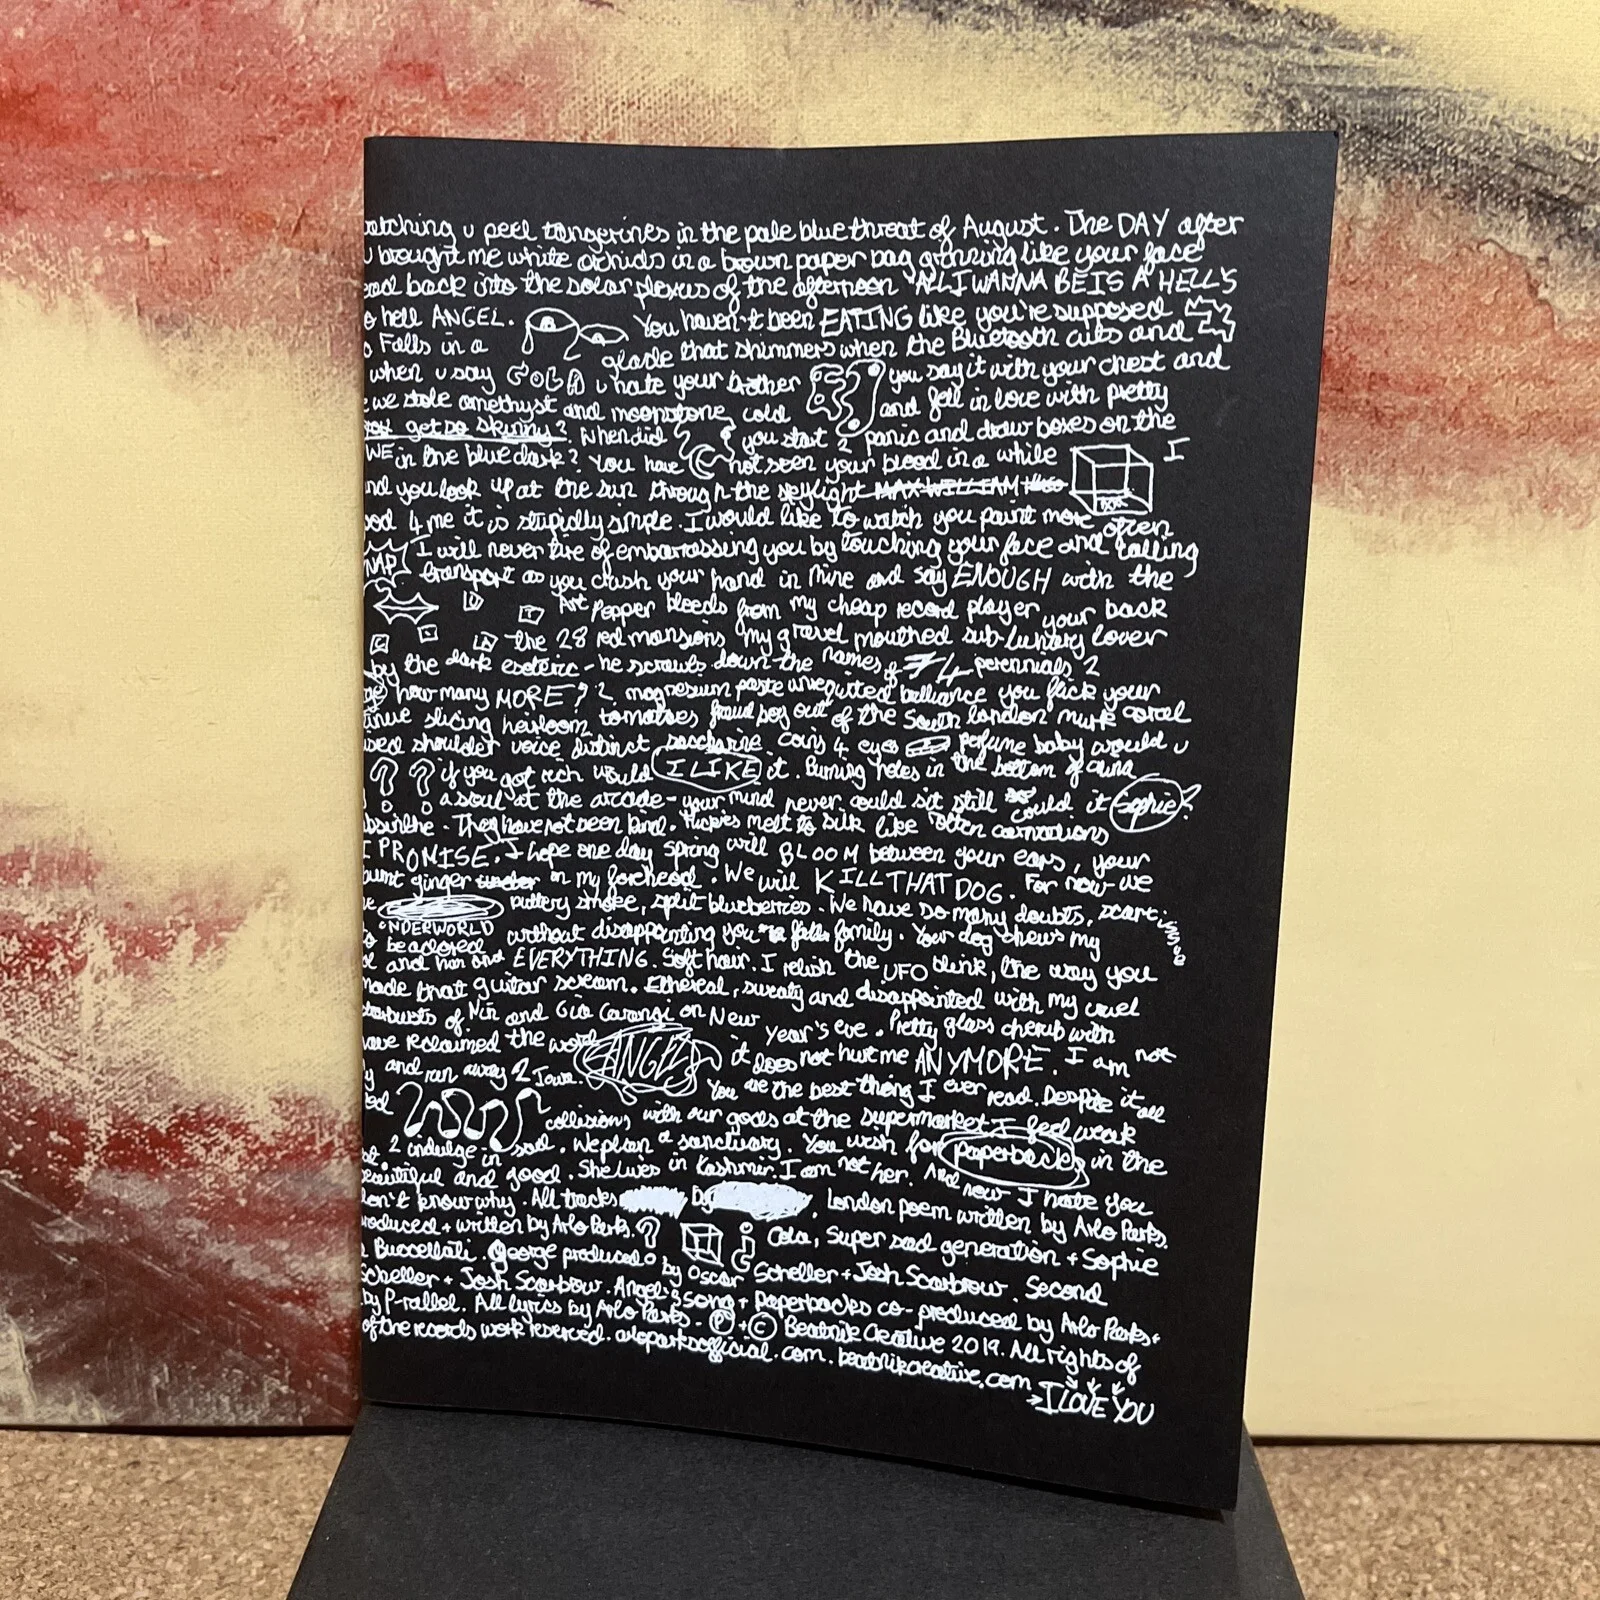 atching u peel tangerines in the pale blue throat of August. The DAY after
u brought me white orchids in a brown paper bag grinning like your face
ead back into the solar plexus of the afternoon "ALL I WANNA BE IS A HELL'S
o hell ANGEL. You haven't been EATING like you're supposed
o Falls in a glade that shimmers when the Bluetooth cuts and
when u say COLA u hate your brother you say it with your chest and
e we stole amethyst and moonstone cold and fell in love with pretty
you get so skinny? When did you start 2 panic and draw boxes on the
WE in the blue dark? You have not seen your blood in a while I
nd you look up at the sun through the skylight MAX WILLIAM
ood 4 me it is stupidly simple. I would like to watch you paint more often
NAP I will never tire of embarrassing you by touching your face and calling
transport as you clash your hand in mine and say ENOUGH with the
Art Pepper bleeds from my cheap record player your back
the 28 red mansions my gravel mouthed sub-lunary lover
by the dark esoteric - he scrawls down the names of 74 perennials 2
how many MORE? 2 magnesium paste unrequited brilliance you flick your
tinue slicing heirloom tomatoes fraud boy out of the South London murk coral
used shoulder voice distinct saccharine coins 4 eyes perfume baby would u
? ? if you got rich would I LIKE it. Burning holes in the bottom of
a soul at the arcade - your mind never could sit still could it Sophie?
absinthe. They have not been kind. Hickies melt to silk like often carnations
I PROMISE. I hope one day spring will BLOOM between your ears, your
burnt ginger under on my forehead. We will KILL THAT DOG. For now we
puttery smoke, split blueberries. We have so many doubts, scarring
UNDERWORLD
o be adored without disappointing you family. Your dog chews my
and him and EVERYTHING. Soft hair. I relish the UFO blink, the way you
made that guitar scream. Ethereal, sweaty and disappointed with my cruel
starbursts of Nin and Gia Carangi on New Year's eve. Pretty glass cherub with
have reclaimed the word ANGEL it does not hurt me ANYMORE. I am not
y and ran away 2 Iowa. You are the best thing I ever read. Despite it all
ed collisions with our gods at the supermarket I feel weak
2 indulge in soul. We plan a sanctuary. You wish for paperbacks in the
eautiful and good. She lives in Kashmir. I am not her. And now - I hate you
don't know why. All tracks by . London poem written by Arlo Parks.
roduced + written by Arlo Parks. ? Cola, Super sad generation + Sophie
Buccellati. George produced by Oscar Scheller + Josh Scarbrow. Second
Scheller + Josh Scarbrow. Angel's song + paperbacks co-produced by Arlo Parks +
by P-rallel. All lyrics by Arlo Parks. Ⓟ + © Beatnik Creative 2019. All rights of
of the records work reserved. arloparksofficial.com. beatnikcreative.com
I LOVE YOU